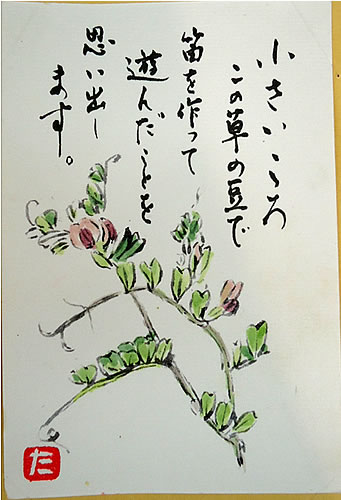 小さいころ
この草の豆で
笛を作って
遊んだことを
思い出し
ます。
た